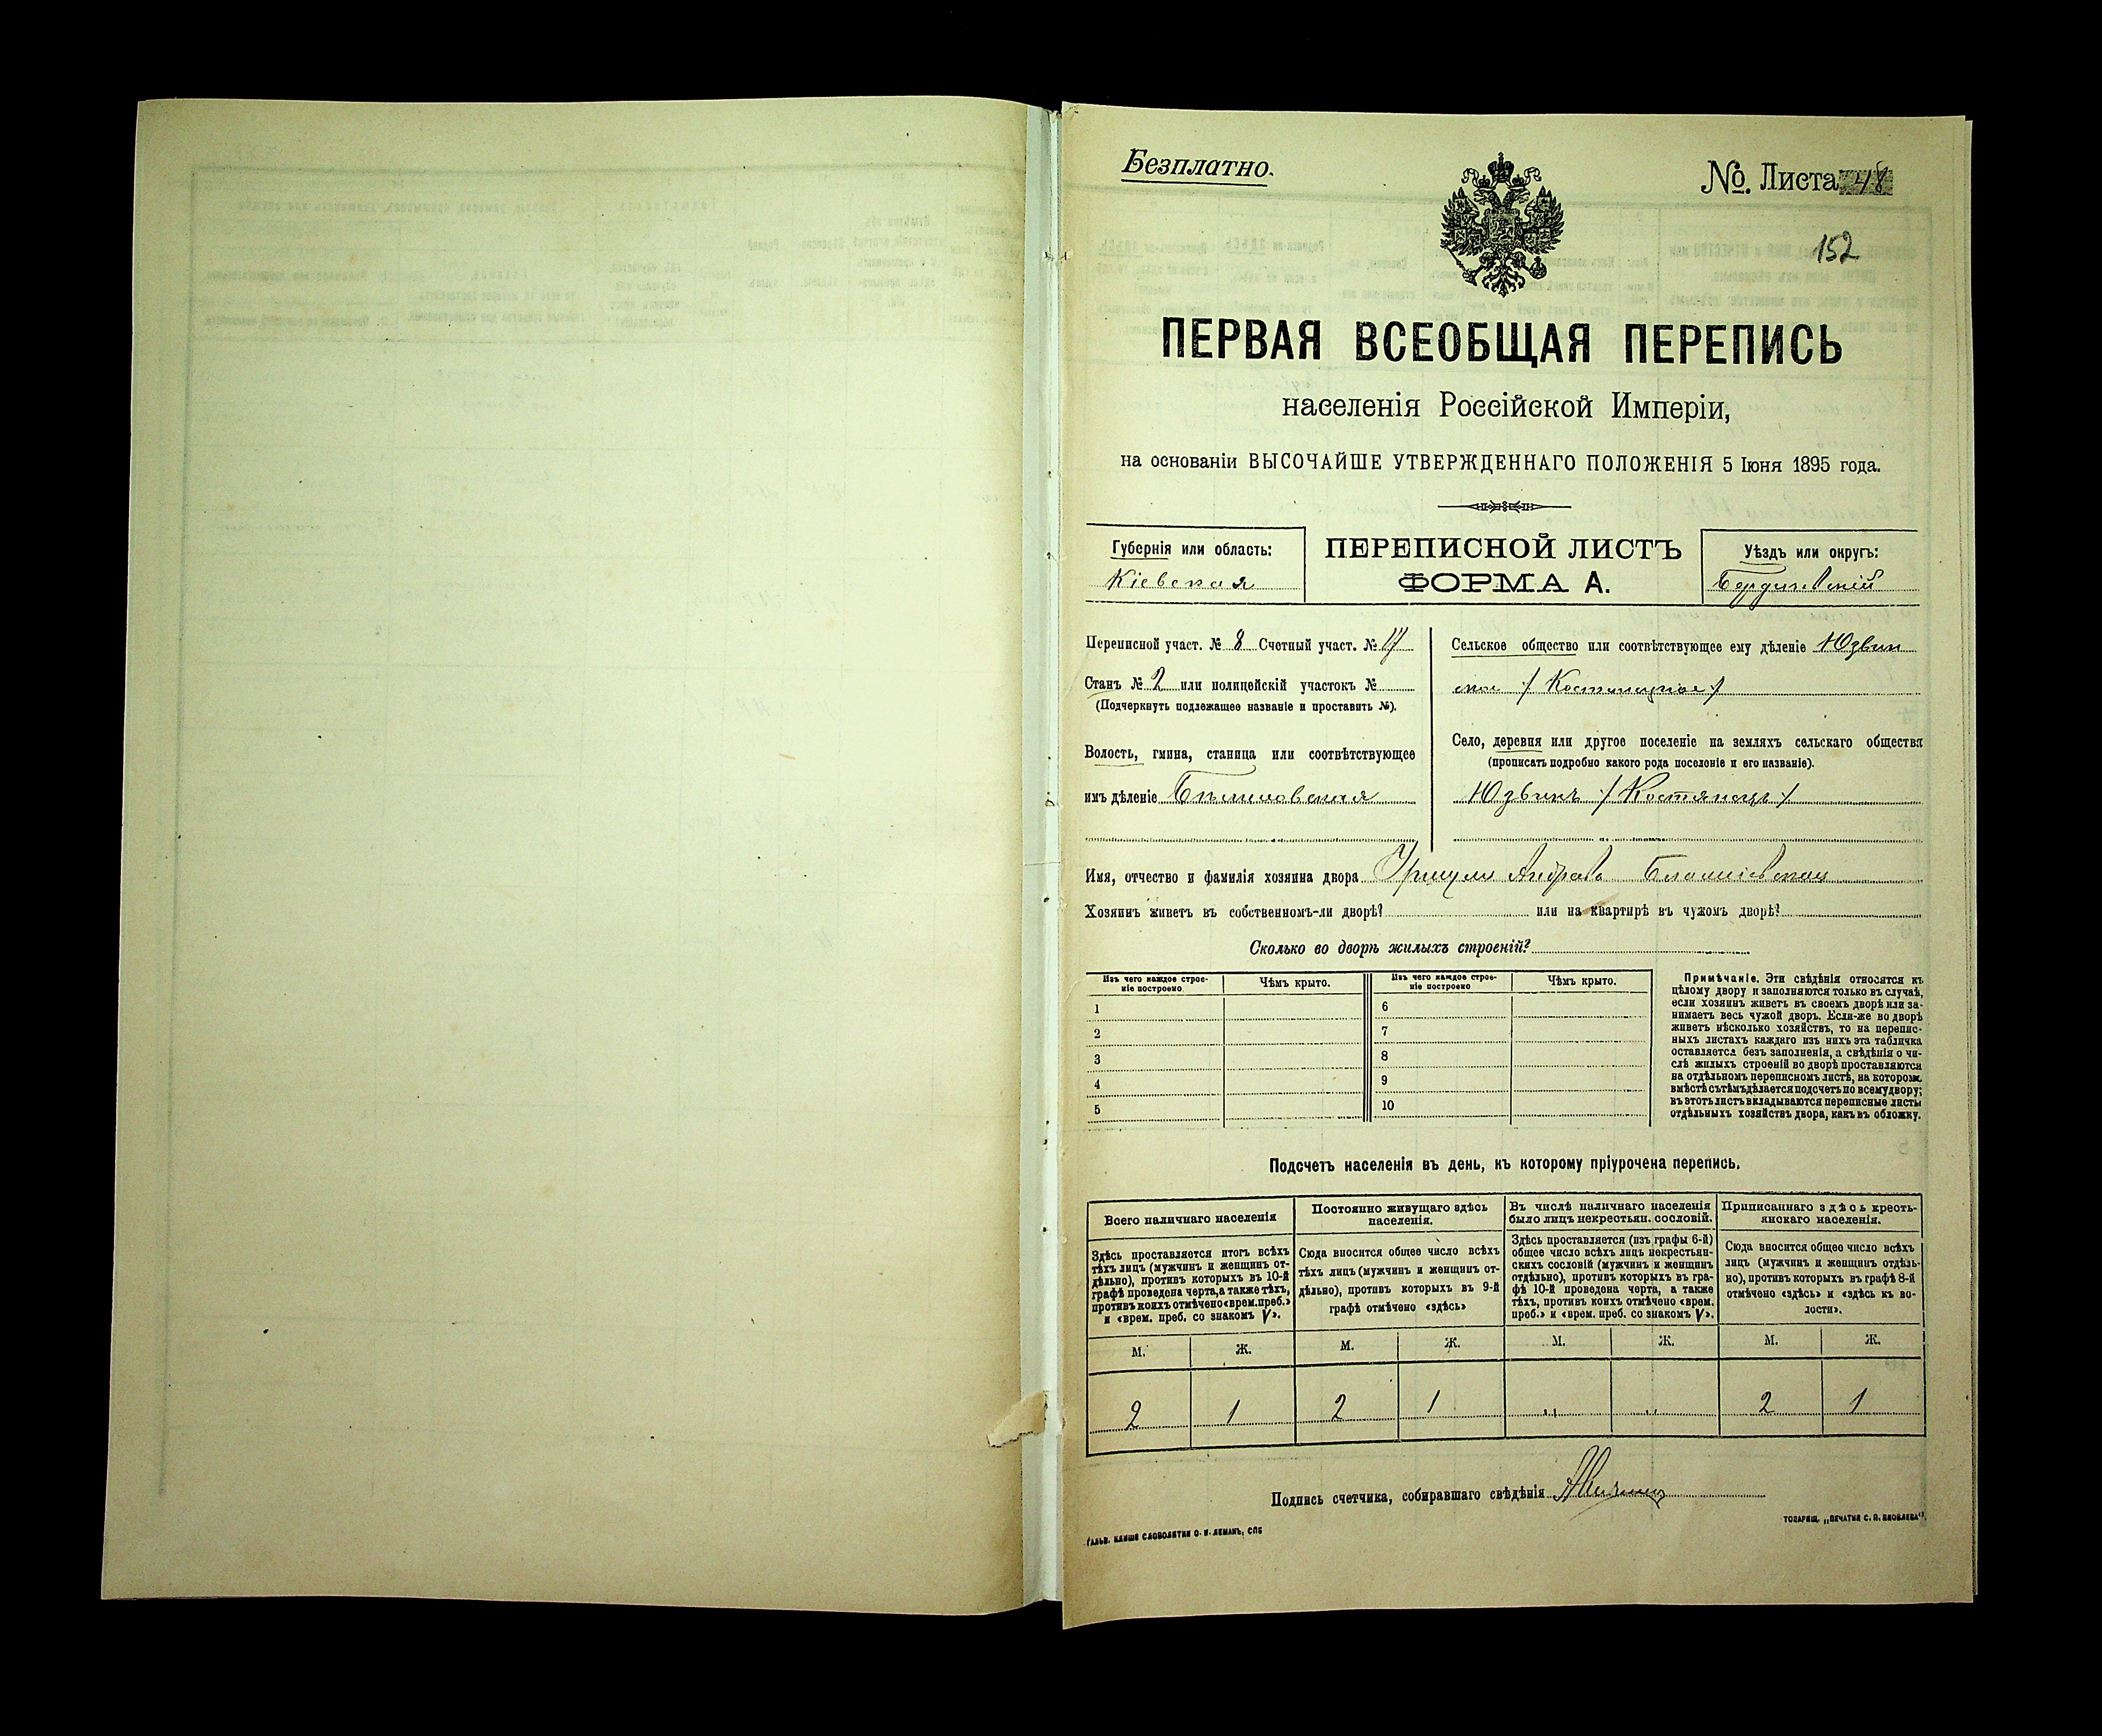 Безплатно.
№. Листа 48
152
ПЕРВАЯ ВСЕОБЩАЯ ПЕРЕПИСЬ
населенія Россійской Имперіи,
на основаніи ВЫСОЧАЙШЕ УТВЕРЖДЕННАГО ПОЛОЖЕНІЯ 5 Іюня 1895 года.
Губернія или область:
Кіевская
ПЕРЕПИСНОЙ ЛИСТЪ
ФОРМА А.
Уѣздъ или округъ:
Бердичевскій
Переписной участ. № 8 Счетный участ. № 17
Станъ № 2 или полицейскій участокъ №
(Подчеркнуть подлежащее названіе и проставить №).
Волость, гмина, станица или соотвѣтствующее
имъ дѣленіе
Сельское общество или соотвѣтствующее ему дѣленіе Юзвин
ское
Село, деревня или другое поселеніе на земляхъ сельскаго общества
(прописать подробно какого рода поселеніе и его названіе).
Юзвинъ / Костянецъ /
Имя, отчество и фамилія хозяина двора
Хозяинъ живетъ въ собственномъ-ли дворѣ? или на квартирѣ въ чужомъ дворѣ?
Сколько во дворѣ жилыхъ строеній?
Изъ чего каждое строе-
ніе построено
Чѣмъ крыто.
Изъ чего каждое строе-
ніе построено
Чѣмъ крыто.
1
2
3
4
5
6
7
8
9
10
Примѣчаніе. Эти свѣдѣнія относятся къ
цѣлому двору и заполняются только въ случаѣ,
если хозяинъ живетъ въ своемъ дворѣ или за-
нимаетъ весь чужой дворъ. Если-же во дворѣ
живетъ нѣсколько хозяйствъ, то на перепис-
ныхъ листахъ каждаго изъ нихъ эта табличка
оставляется безъ заполненія, а свѣдѣнія о чи-
слѣ жилыхъ строеній во дворѣ проставляются
на отдѣльномъ переписномъ листѣ, на которомъ
вмѣстѣ съ тѣмъ дѣлается подсчетъ по всему двору;
въ этотъ листъ вкладываются переписные листы
отдѣльныхъ хозяйствъ двора, какъ въ обложку.
Подсчетъ населенія въ день, къ которому пріурочена перепись.
Всего наличнаго населенія
Постоянно живущаго здѣсь
населенія.
Въ числѣ наличнаго населенія
было лицъ некрестьян. сословій.
Приписаннаго здѣсь кресть-
янскаго населенія.
Здѣсь проставляется итогъ всѣхъ
тѣхъ лицъ (мужчинъ и женщинъ от-
дѣльно), противъ которыхъ въ 10-й
графѣ проведена черта, а также тѣхъ,
противъ коихъ отмѣчено «врем. преб.»
и «врем. преб. со знакомъ V».
Сюда вносится общее число всѣхъ
тѣхъ лицъ (мужчинъ и женщинъ от-
дѣльно), противъ которыхъ въ 9-й
графѣ отмѣчено «здѣсь»
Здѣсь проставляется (изъ графы 6-й)
общее число всѣхъ лицъ некрестьян-
скихъ сословій (мужчинъ и женщинъ
отдѣльно), противъ которыхъ въ гра-
фѣ 10-й проведена черта, а также
тѣхъ, противъ коихъ отмѣчено «врем.
преб.» и «врем. преб. со знакомъ V».
Сюда вносится общее число всѣхъ
лицъ (мужчинъ и женщинъ отдѣль-
но), противъ которыхъ въ графѣ 8-й
отмѣчено «здѣсь» и «здѣсь къ во-
лости».
М. Ж. М. Ж. М. Ж. М. Ж.
2 1 2 1 „ „ 2 1
Подпись счетчика, собиравшаго свѣдѣнія
ГАЛЬВ. КЛИШЕ СЛОВОЛИТНИ О. И. ЛЕМАНЪ, СПБ
ТОВАРИЩ. „ПЕЧАТНЯ С. П. ЯКОВЛЕВА".